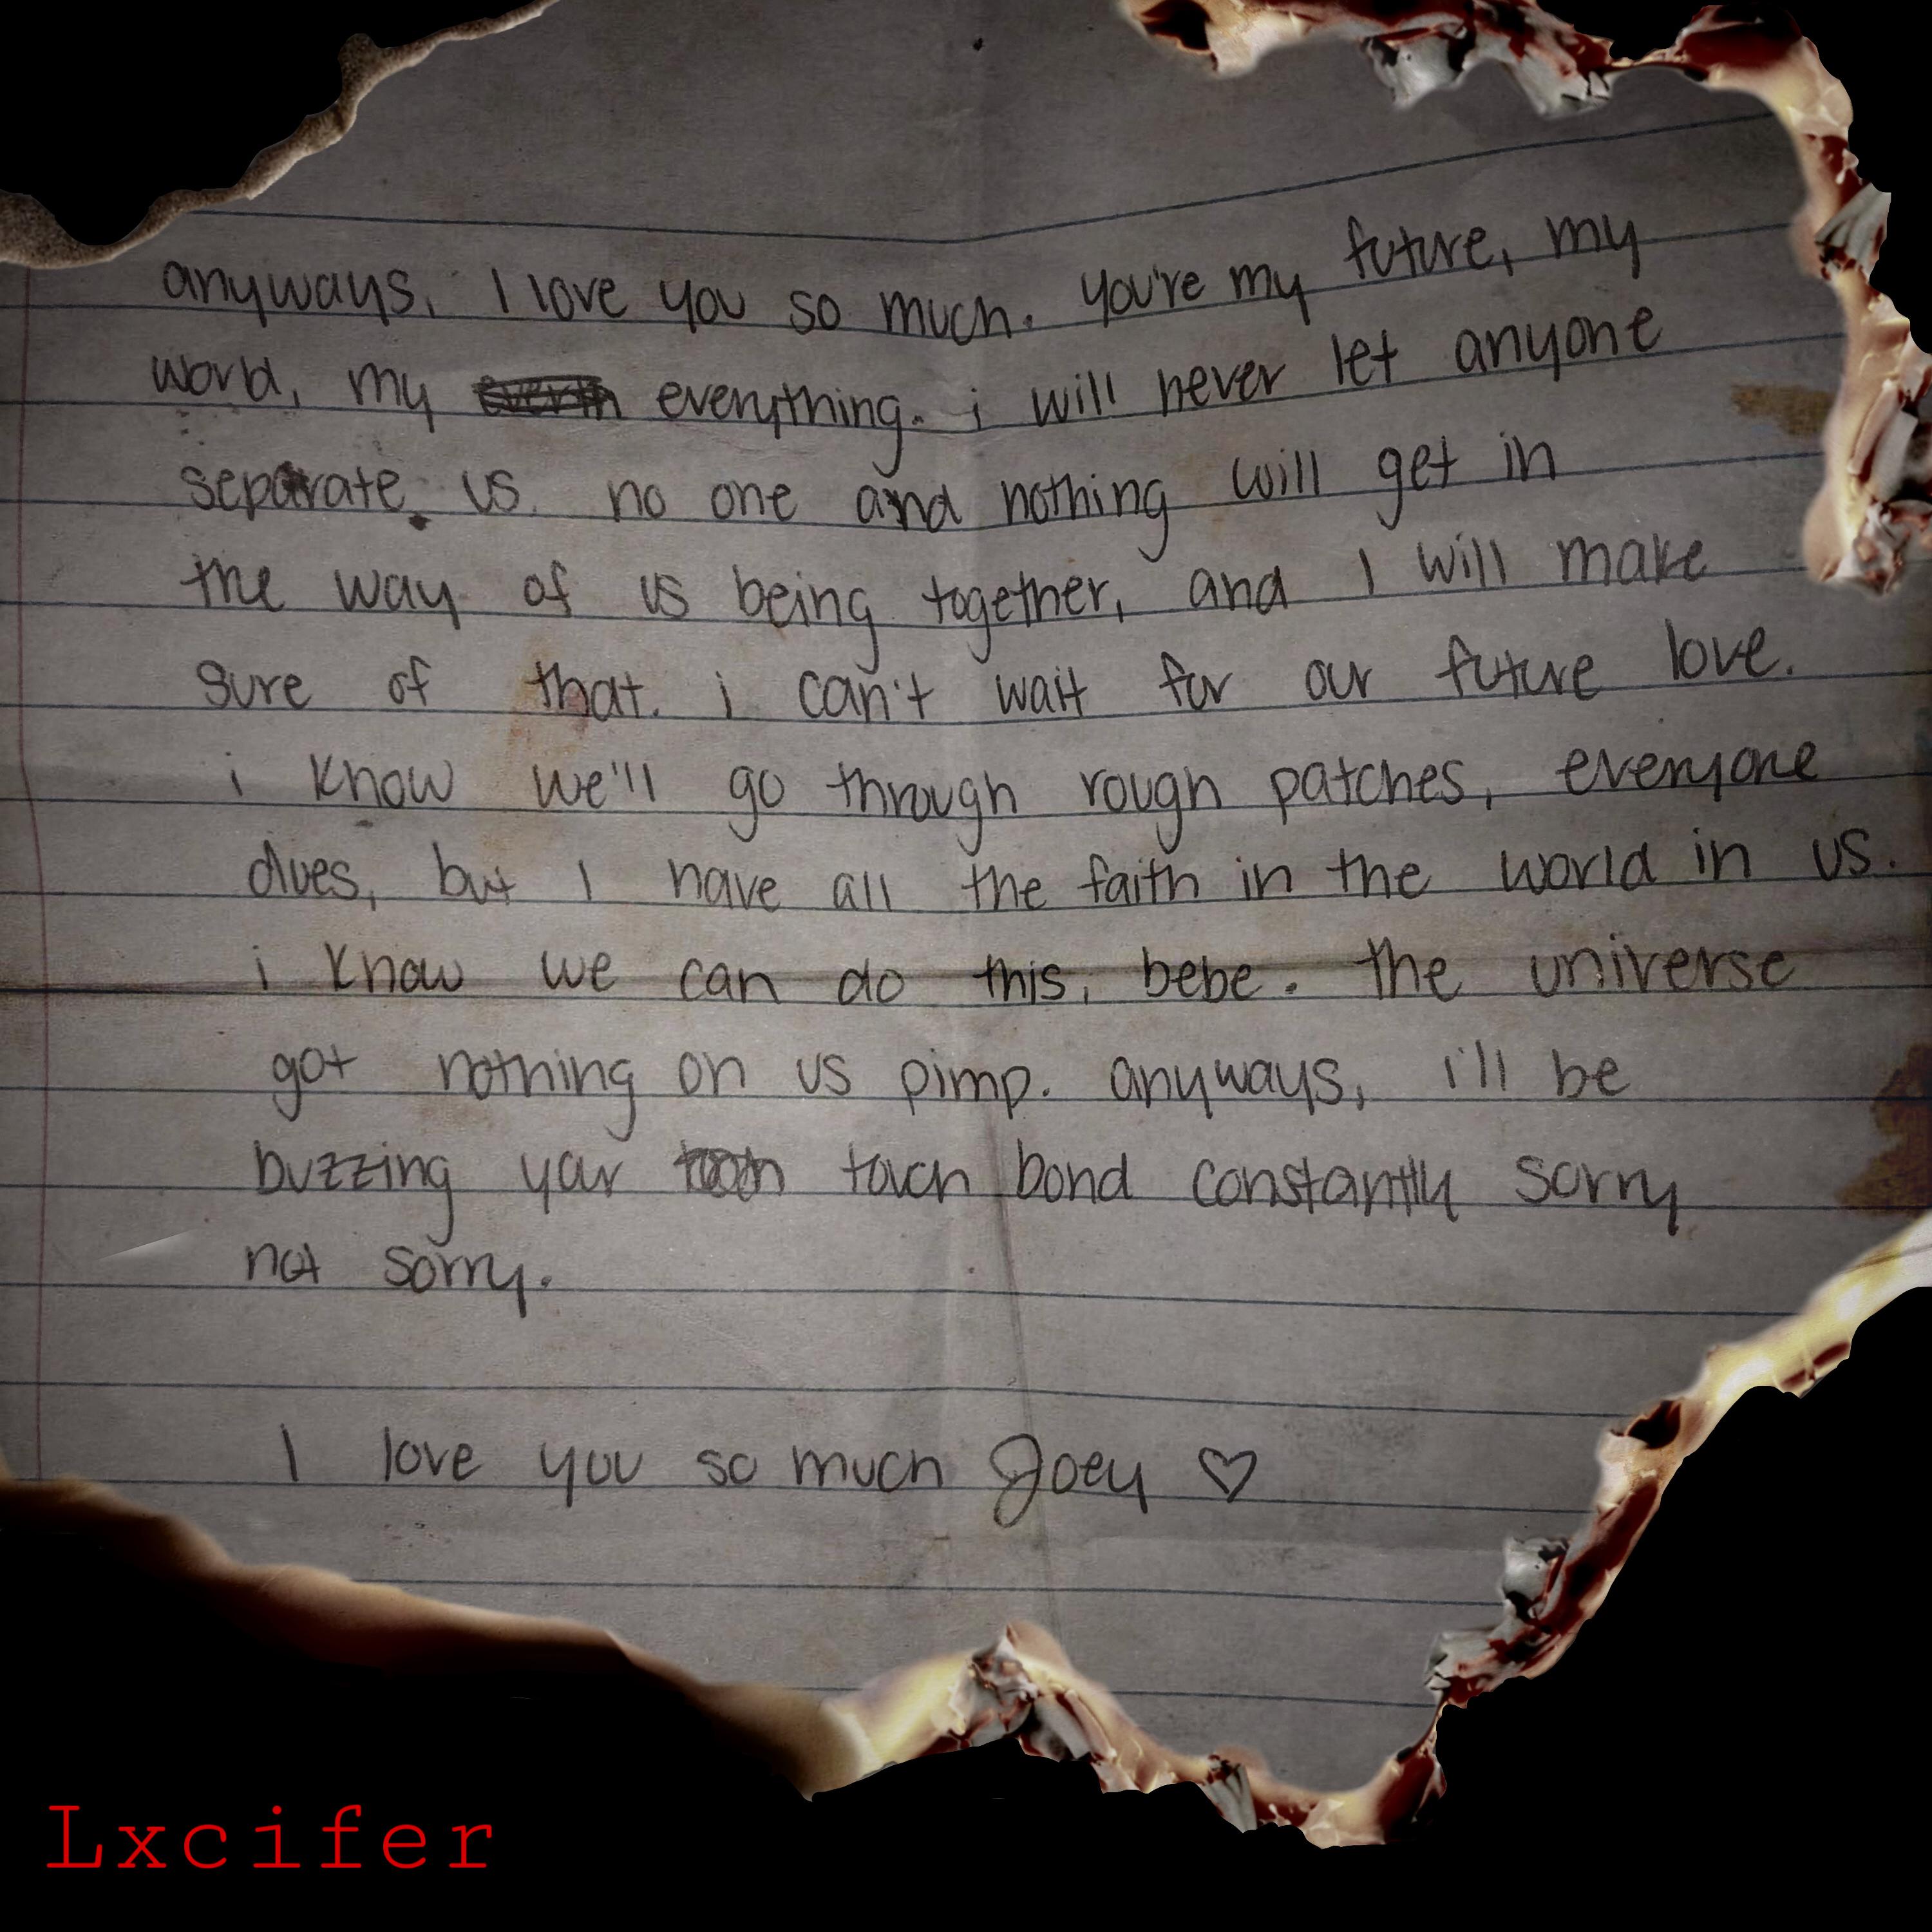 anyways, I love you so much. you're my future, my
world, my everything. i will never let anyone
separate us. no one and nothing will get in
the way of us being together, and I will make
sure of that. i can't wait for our future love.
i know we'll go through rough patches, everyone
does, but I have all the faith in the world in us.
i know we can do this, bebe. the universe
got nothing on us pimp. anyways, i'll be
buzzing your touch bond constantly sorry
not sorry.
I love you so much Joey ♡
Lxcifer